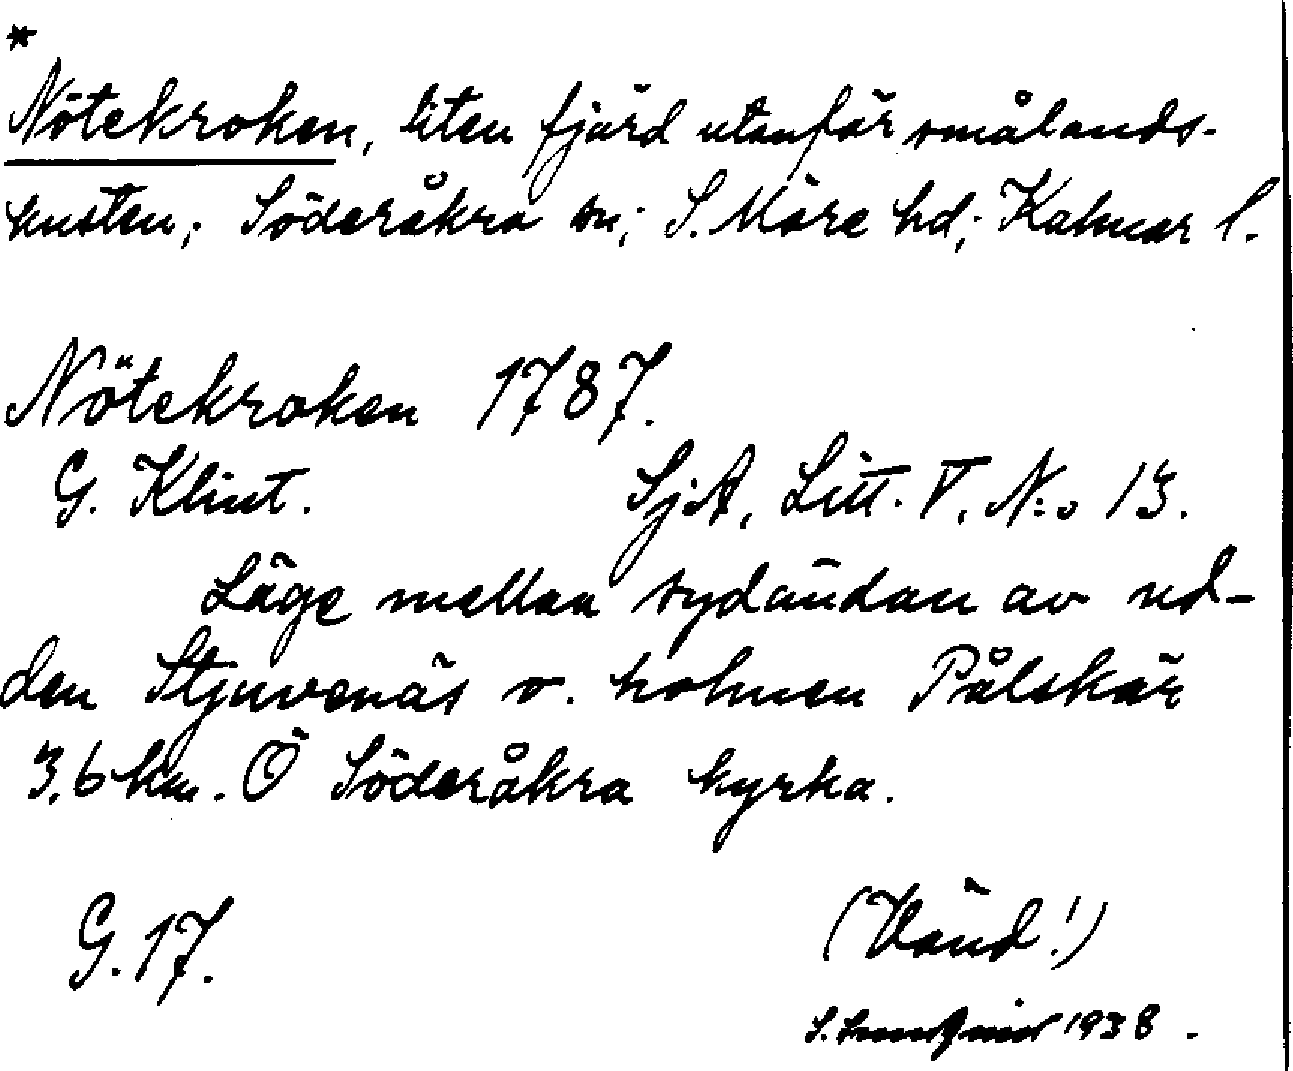 *
Nötekroken, liten fjärd utanför smålands-
kusten; Söderåkra sn; S. Möre hd; Kalmar l.
Nötekroken 1787.
G. Klint. SjA, Litt. V, N:o 13.
Läge mellan sydändan av ud-
den Stjuvenäs o. holmen Pålskär
3,6 km. Ö Söderåkra kyrka.
G. 17. (Vänd!)
S. 1938.